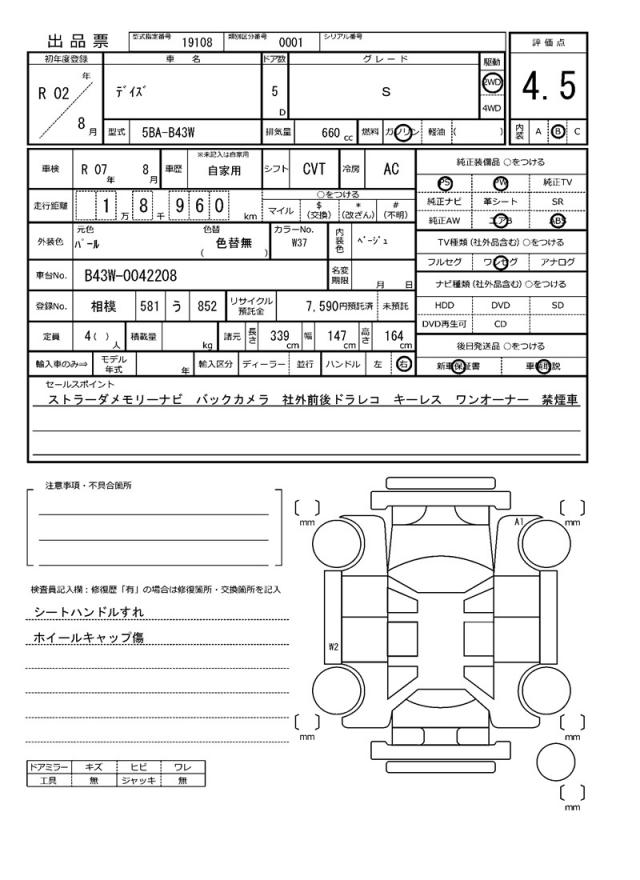 出品票 型式指定番号 19108 類別区分番号 0001 シリアル番号
評価点
4.5
初年度登録 車名 ドア数 グレード 駆動
R 02 年 8 月 デイズ 5 D S 2WD 4WD
型式 5BA-B43W 排気量 660 cc 燃料 ガソリン 軽油 ( )
内装 A B C
車検 R 07 年 8 月 車歴 ※未記入は自家用 自家用 シフト CVT 冷房 AC
走行距離 1 万 8 千 9 6 0 km ○をつける
マイル $ (交換) * (改ざん) # (不明)
外装色 元色 パール 色替 色替無 ( ) カラーNo. W37 内装色 ベージュ
車台No. B43W-0042208 名変期限 月 日
登録No. 相模 581 う 852 リサイクル預託金 7,590円預託済 未預託
定員 4( ) 人 積載量 kg 諸元 長さ 339 cm 幅 147 cm 高さ 164 cm
輸入車のみ⇒ モデル年式 年 輸入区分 ディーラー 並行 ハンドル 左 右
純正装備品 ○をつける
PS PW 純正TV
純正ナビ 革シート SR
純正AW エアB ABS
TV種類 (社外品含む) ○をつける
フルセグ ワンセグ アナログ
ナビ種類 (社外品含む) ○をつける
HDD DVD SD
DVD再生可 CD
後日発送品 ○をつける
新車保証書 車輌取説
セールスポイント
ストラーダメモリーナビ バックカメラ 社外前後ドラレコ キーレス ワンオーナー 禁煙車
注意事項・不具合箇所
検査員記入欄：修復歴「有」の場合は修復箇所・交換箇所を記入
シートハンドルすれ
ホイールキャップ傷
ドアミラー キズ ヒビ ワレ
工具 無 ジャッキ 無
mm mm
A1
W2
mm mm
mm